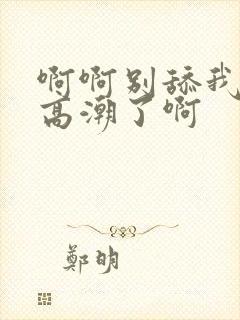 啊啊别舔我
高潮了啊
鄭明